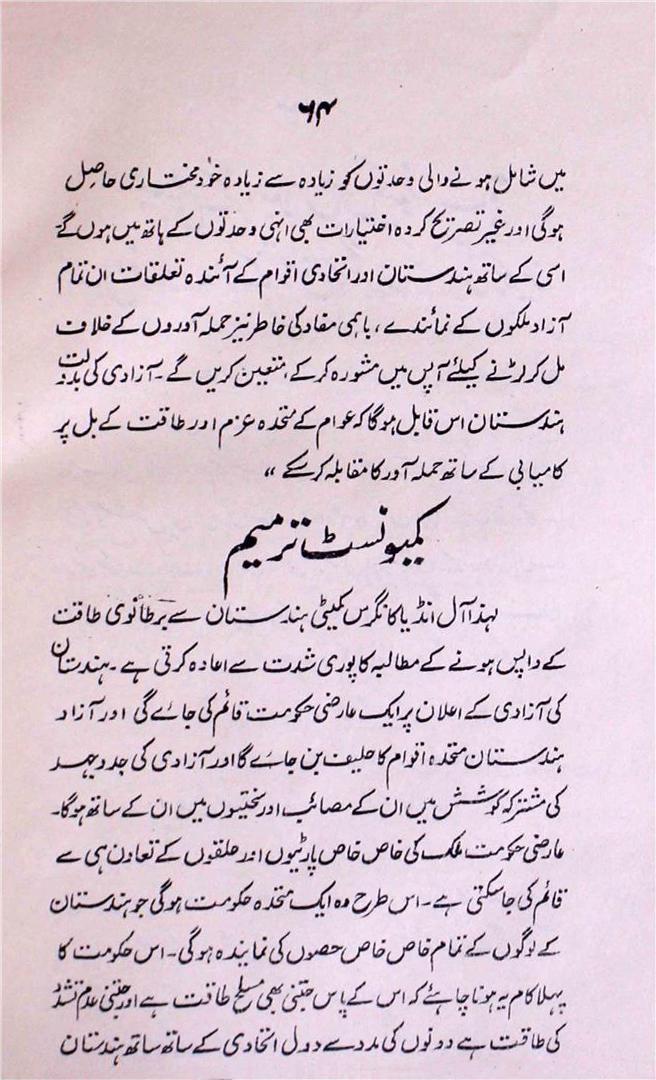 ۶۴
میں شامل ہونے والی وحدتوں کو زیادہ سے زیادہ خود مختاری حاصل
ہوگی اور غیر تصریح کردہ اختیارات بھی انہی وحدتوں کے ہاتھ میں ہوں گے
اسی کے ساتھ ہندستان اور اتحادی اقوام کے آئندہ تعلقات ان تمام
آزاد ملکوں کے نمائندے، باہمی مفاد کی خاطر نیز حملہ آوروں کے خلاف
مل کر لڑنے کیلئے آپس میں مشورہ کر کے متعین کریں گے۔ آزادی کی بدولت
ہندستان اس قابل ہوگا کہ عوام کے متحدہ عزم اور طاقت کے بل پر
کامیابی کے ساتھ حملہ آور کا مقابلہ کر سکے "
کمیونسٹ ترمیم
لہذا آل انڈیا کانگرس کمیٹی ہندستان سے برطانوی طاقت
کے واپس ہونے کے مطالبہ کا پوری شدت سے اعادہ کرتی ہے۔ ہندستان
کی آزادی کے اعلان پر ایک عارضی حکومت قائم کی جائے گی اور آزاد
ہندستان متحدہ اقوام کا حلیف بن جائے گا اور آزادی کی جدوجہد
کی مشترکہ کوشش میں ان کے مصائب اور سختیوں میں ان کے ساتھ ہوگا۔
عارضی حکومت ملک کی خاص خاص پارٹیوں اور حلقوں کے تعاون ہی سے
قائم کی جاسکتی ہے۔ اس طرح وہ ایک متحدہ حکومت ہوگی جو ہندستان
کے لوگوں کے تمام خاص خاص حصوں کی نمایندہ ہوگی۔ اس حکومت کا
پہلا کام یہ ہونا چاہئے کہ اس کے پاس جتنی بھی مسلح طاقت ہے اور جتنی عدم تشدد
کی طاقت ہے دونوں کی مدد سے دول اتحادی کے ساتھ ساتھ ہندستان